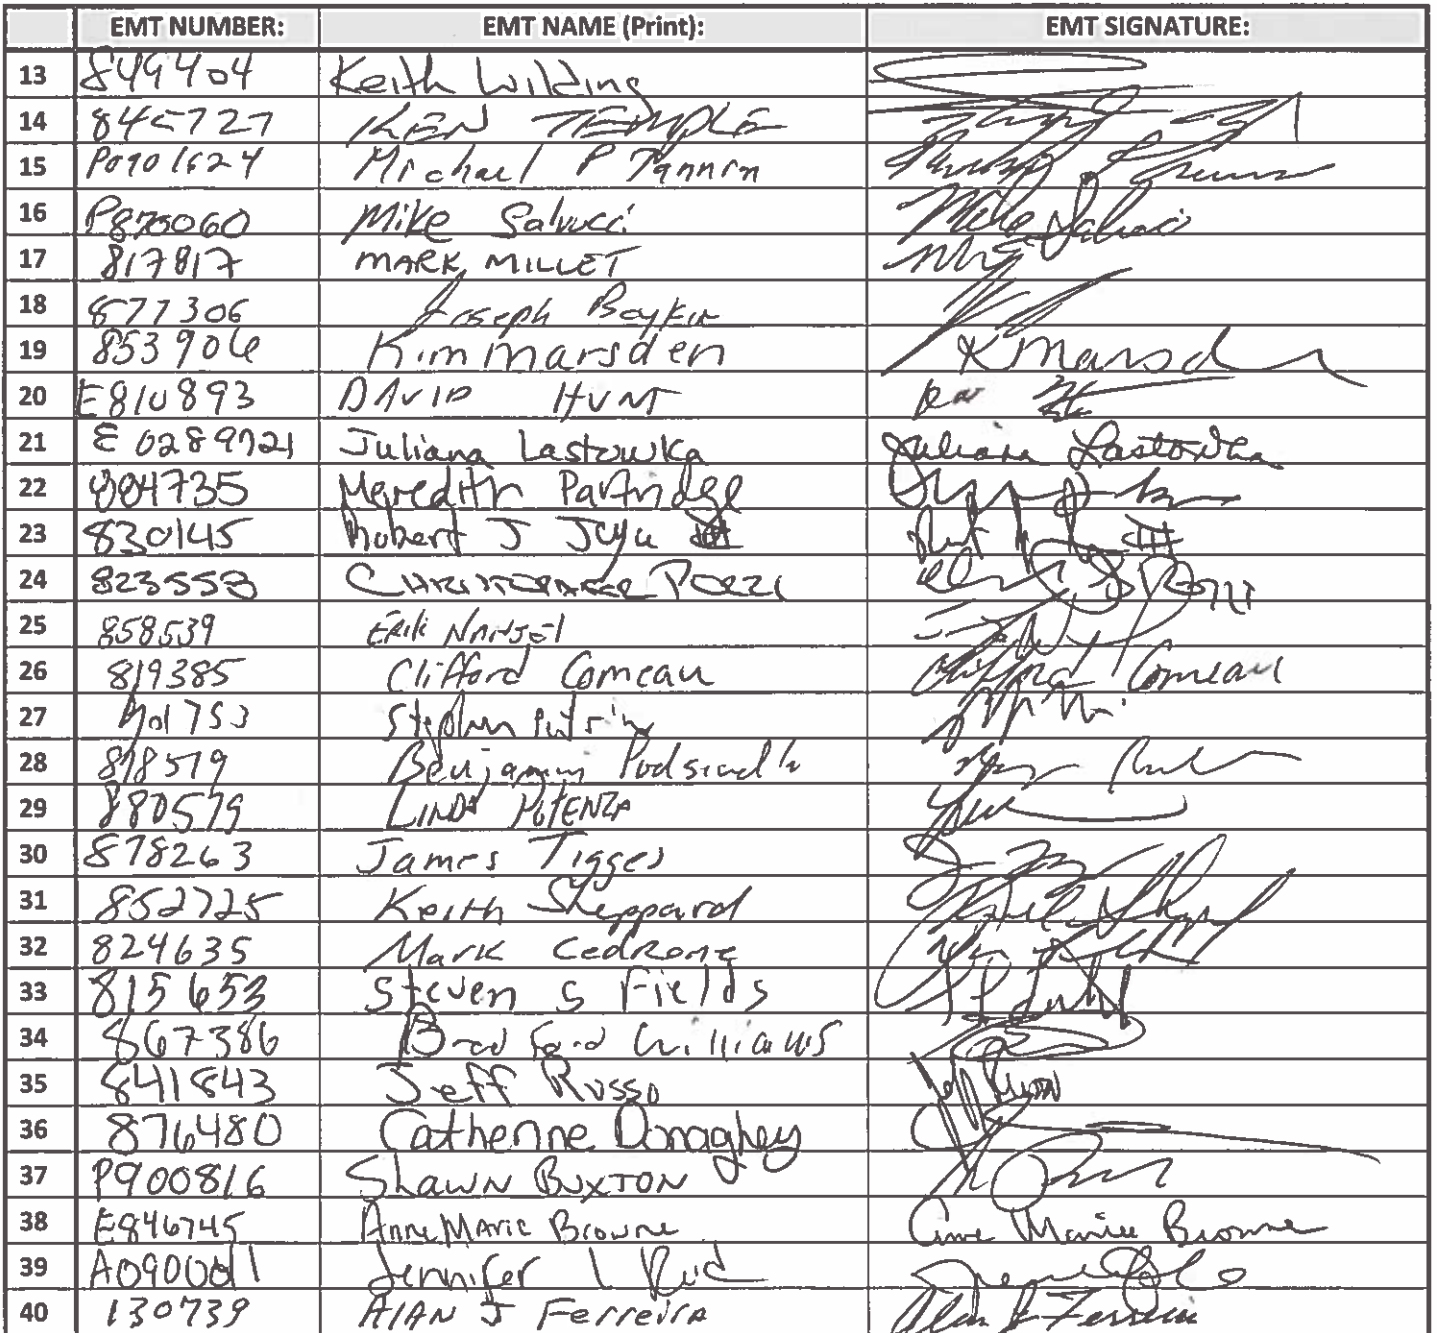 EMT NUMBER: EMT NAME (Print): EMT SIGNATURE:
13 849404 Keith Wilding
14 845727 KEN TEMPLE
15 P0901624 Michael P Tannin
16 P870060 Mike Salvucci Mike Salvucci
17 817817 MARK MILLET
18 877306 Joseph Boykin
19 853906 Kim Marsden K Marsden
20 E810893 DAVID HUNT
21 E0289721 Juliana Lastowka Juliana Lastowka
22 884735 Meredith Partridge
23 830145 Robert J Juju III
24 823553 CHRISTOPHER POZZI
25 858539 ERIK NANSEL
26 819385 Clifford Comeau Clifford Comeau
27 Stephen
28 878579 Benjamin Podsiadlo
29 880579 LINDA POTENZA
30 878263 James Tigges
31 852725 Keith Sheppard
32 824635 Mark Cedrone
33 815653 Steven S Fields
34 867386 Bradford Williams
35 841843 Jeff Russo Jeff Russo
36 876480 Catherine Donaghey
37 P900816 SHAWN BUXTON
38 E846745 Anne Marie Browne Anne Marie Browne
39 A0900011 Jennifer L Reid
40 130739 AlAN J Ferreira Alan J Ferreira